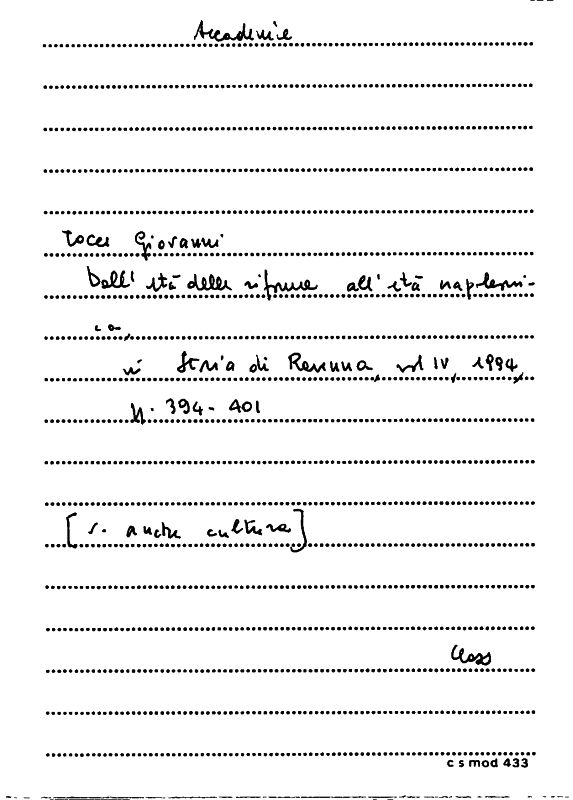 Accademie
Tocci Giovanni
Dall'età delle riforme all'età napoleoni-
ca,
in Storia di Ravenna, vol IV, 1994,
pp. 394-401
[v. anche cultura]
Class
c s mod 433